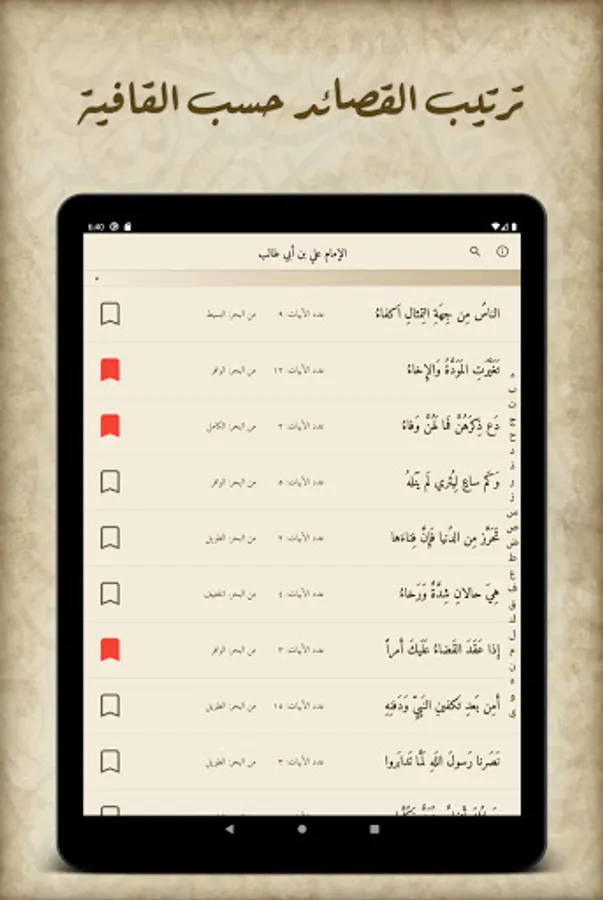 ترتيب القصائد حسب القافية
6:40
الإمام علي بن أبي طالب
ء
الناسُ مِن جِهَةِ التِمثالِ أَكفاءُ عدد الأبيات: ٩ من البحر: البسيط
تَغَيَّرَتِ المَوَدَّةُ وَالإِخاءُ عدد الأبيات: ١٢ من البحر: الوافر
دَع ذِكرَهُنَّ فَما لَهُنَّ وَفاءُ عدد الأبيات: ٢ من البحر: الكامل
وَكَم ساعٍ لِيُثري لَم يَنَلهُ عدد الأبيات: ٥ من البحر: الوافر
تَحَرَّز مِنَ الدُنيا فَإِنَّ فِناءَها عدد الأبيات: ٢ من البحر: الطويل
هِيَ حالانِ شِدَّةٌ وَرَخاءُ عدد الأبيات: ٤ من البحر: الخفيف
إِذا عَقَدَ القَضاءُ عَلَيكَ أَمراً عدد الأبيات: ٣ من البحر: الوافر
أَمِن بَعدِ تَكفينِ النَبِيِّ وَدَفنِهِ عدد الأبيات: ١٥ من البحر: الطويل
نَصَرنا رَسولَ اللَهِ لَمّا تَدابَروا عدد الأبيات: ٣ من البحر: الطويل
ء
ب
ت
ج
ح
د
ذ
ر
ز
س
ص
ض
ط
ع
ف
ق
ك
ل
م
ن
ه
و
ى